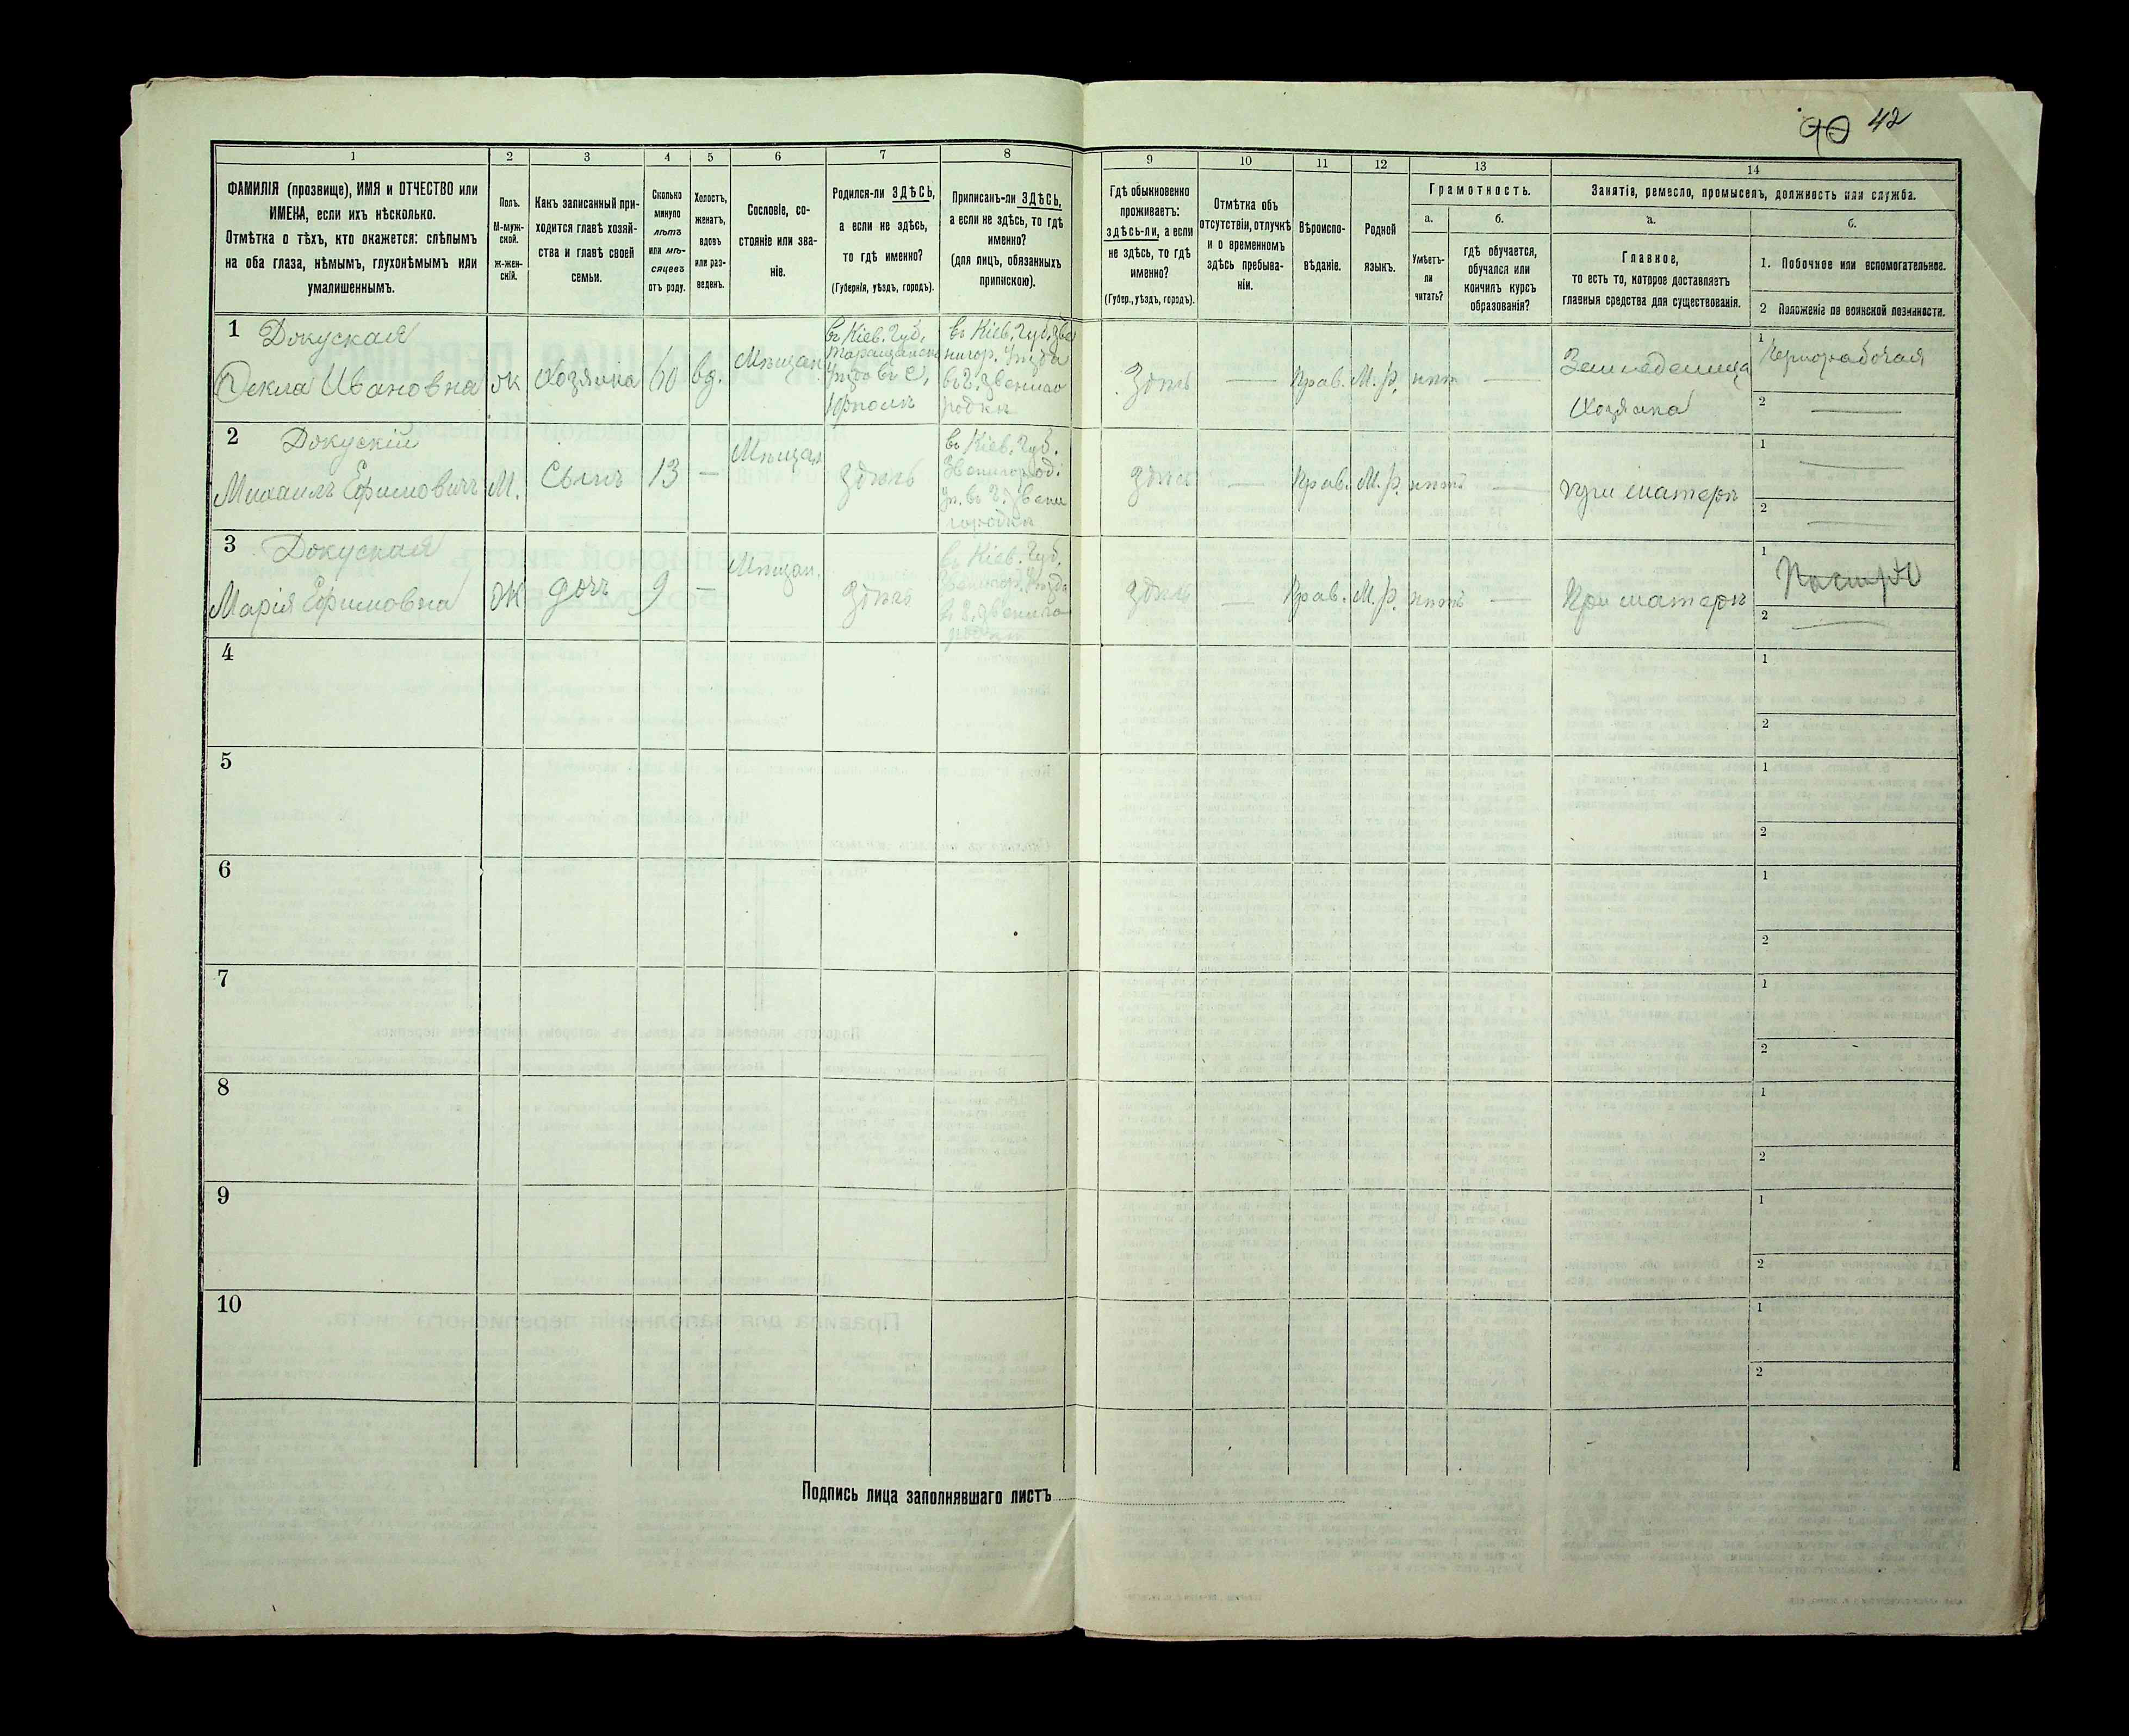 90 42
1 2 3 4 5 6 7 8 9 10 11 12 13 14
ФАМИЛІЯ (прозвище), ИМЯ и ОТЧЕСТВО или
ИМЕНА, если ихъ нѣсколько.
Отмѣтка о тѣхъ, кто окажется: слѣпымъ
на оба глаза, нѣмымъ, глухонѣмымъ или
умалишеннымъ.
Полъ.
М-муж-
ской.
ж-жен-
скій.
Какъ записанный при-
ходится главѣ хозяй-
ства и главѣ своей
семьи.
Сколько
минуло
лѣтъ
или мѣ-
сяцевъ
отъ роду.
Холостъ,
женатъ,
вдовъ
или раз-
веденъ.
Сословіе, со-
стояніе или зва-
ніе.
Родился-ли ЗДѢСЬ,
а если не здѣсь,
то гдѣ именно?
(Губернія, уѣздъ, городъ).
Приписанъ-ли ЗДѢСЬ,
а если не здѣсь, то гдѣ
именно?
(для лицъ, обязанныхъ
припискою).
Гдѣ обыкновенно
проживаетъ:
здѣсь-ли, а если
не здѣсь, то гдѣ
именно?
(Губер., уѣздъ, городъ).
Отмѣтка объ
отсутствіи, отлучкѣ
и о временномъ
здѣсь пребыва-
ніи.
Вѣроиспо-
вѣданіе.
Родной
языкъ.
Грамотность.
а.
Умѣетъ-
ли
читать?
б.
гдѣ обучается,
обучался или
кончилъ курсъ
образованія?
Занятія, ремесло, промыселъ, должность или служба.
а.
Главное,
то есть то, которое доставляетъ
главныя средства для существованія.
б.
1. Побочное или вспомогательное.
2 Положеніе по воинской повинности.
1 Докуская
Текла Ивановна
ж
Хозяйка
60
вд.
Мѣщан
въ Кіев. Губ.
Таращанско
Уѣздѣ въ С.
въ Кіев. Губ. Зве
нигор. Уѣзда
въ г. Звениго
родки
Здѣсь
—
Прав.
М. р.
нѣт
—
Земледелица
Хозяйка
1 Чернорабочая
2 —
2 Докускій
Михаилъ Ефимовичъ
М.
Сынъ
13
—
Мѣщан
Здѣсь
въ Кіев. Губ.
Звенигород.
Уѣ. въ г. Звени
городки
Здѣсь
—
Прав.
М. р.
нѣтъ
—
при матери
1 —
2 —
3 Докуская
Марія Ефимовна
Ж
дочь
9
—
Мѣщан.
Здѣсь
въ Кіев. Губ.
Звенигор. Уѣзда
в г. Звениго
родки
Здѣсь
—
Прав.
М. р.
нѣтъ
—
При матери
1
2 —
4 1
2
5 1
2
6 1
2
7 1
2
8 1
2
9 1
2
10 1
2
Подпись лица заполнявшаго листъ